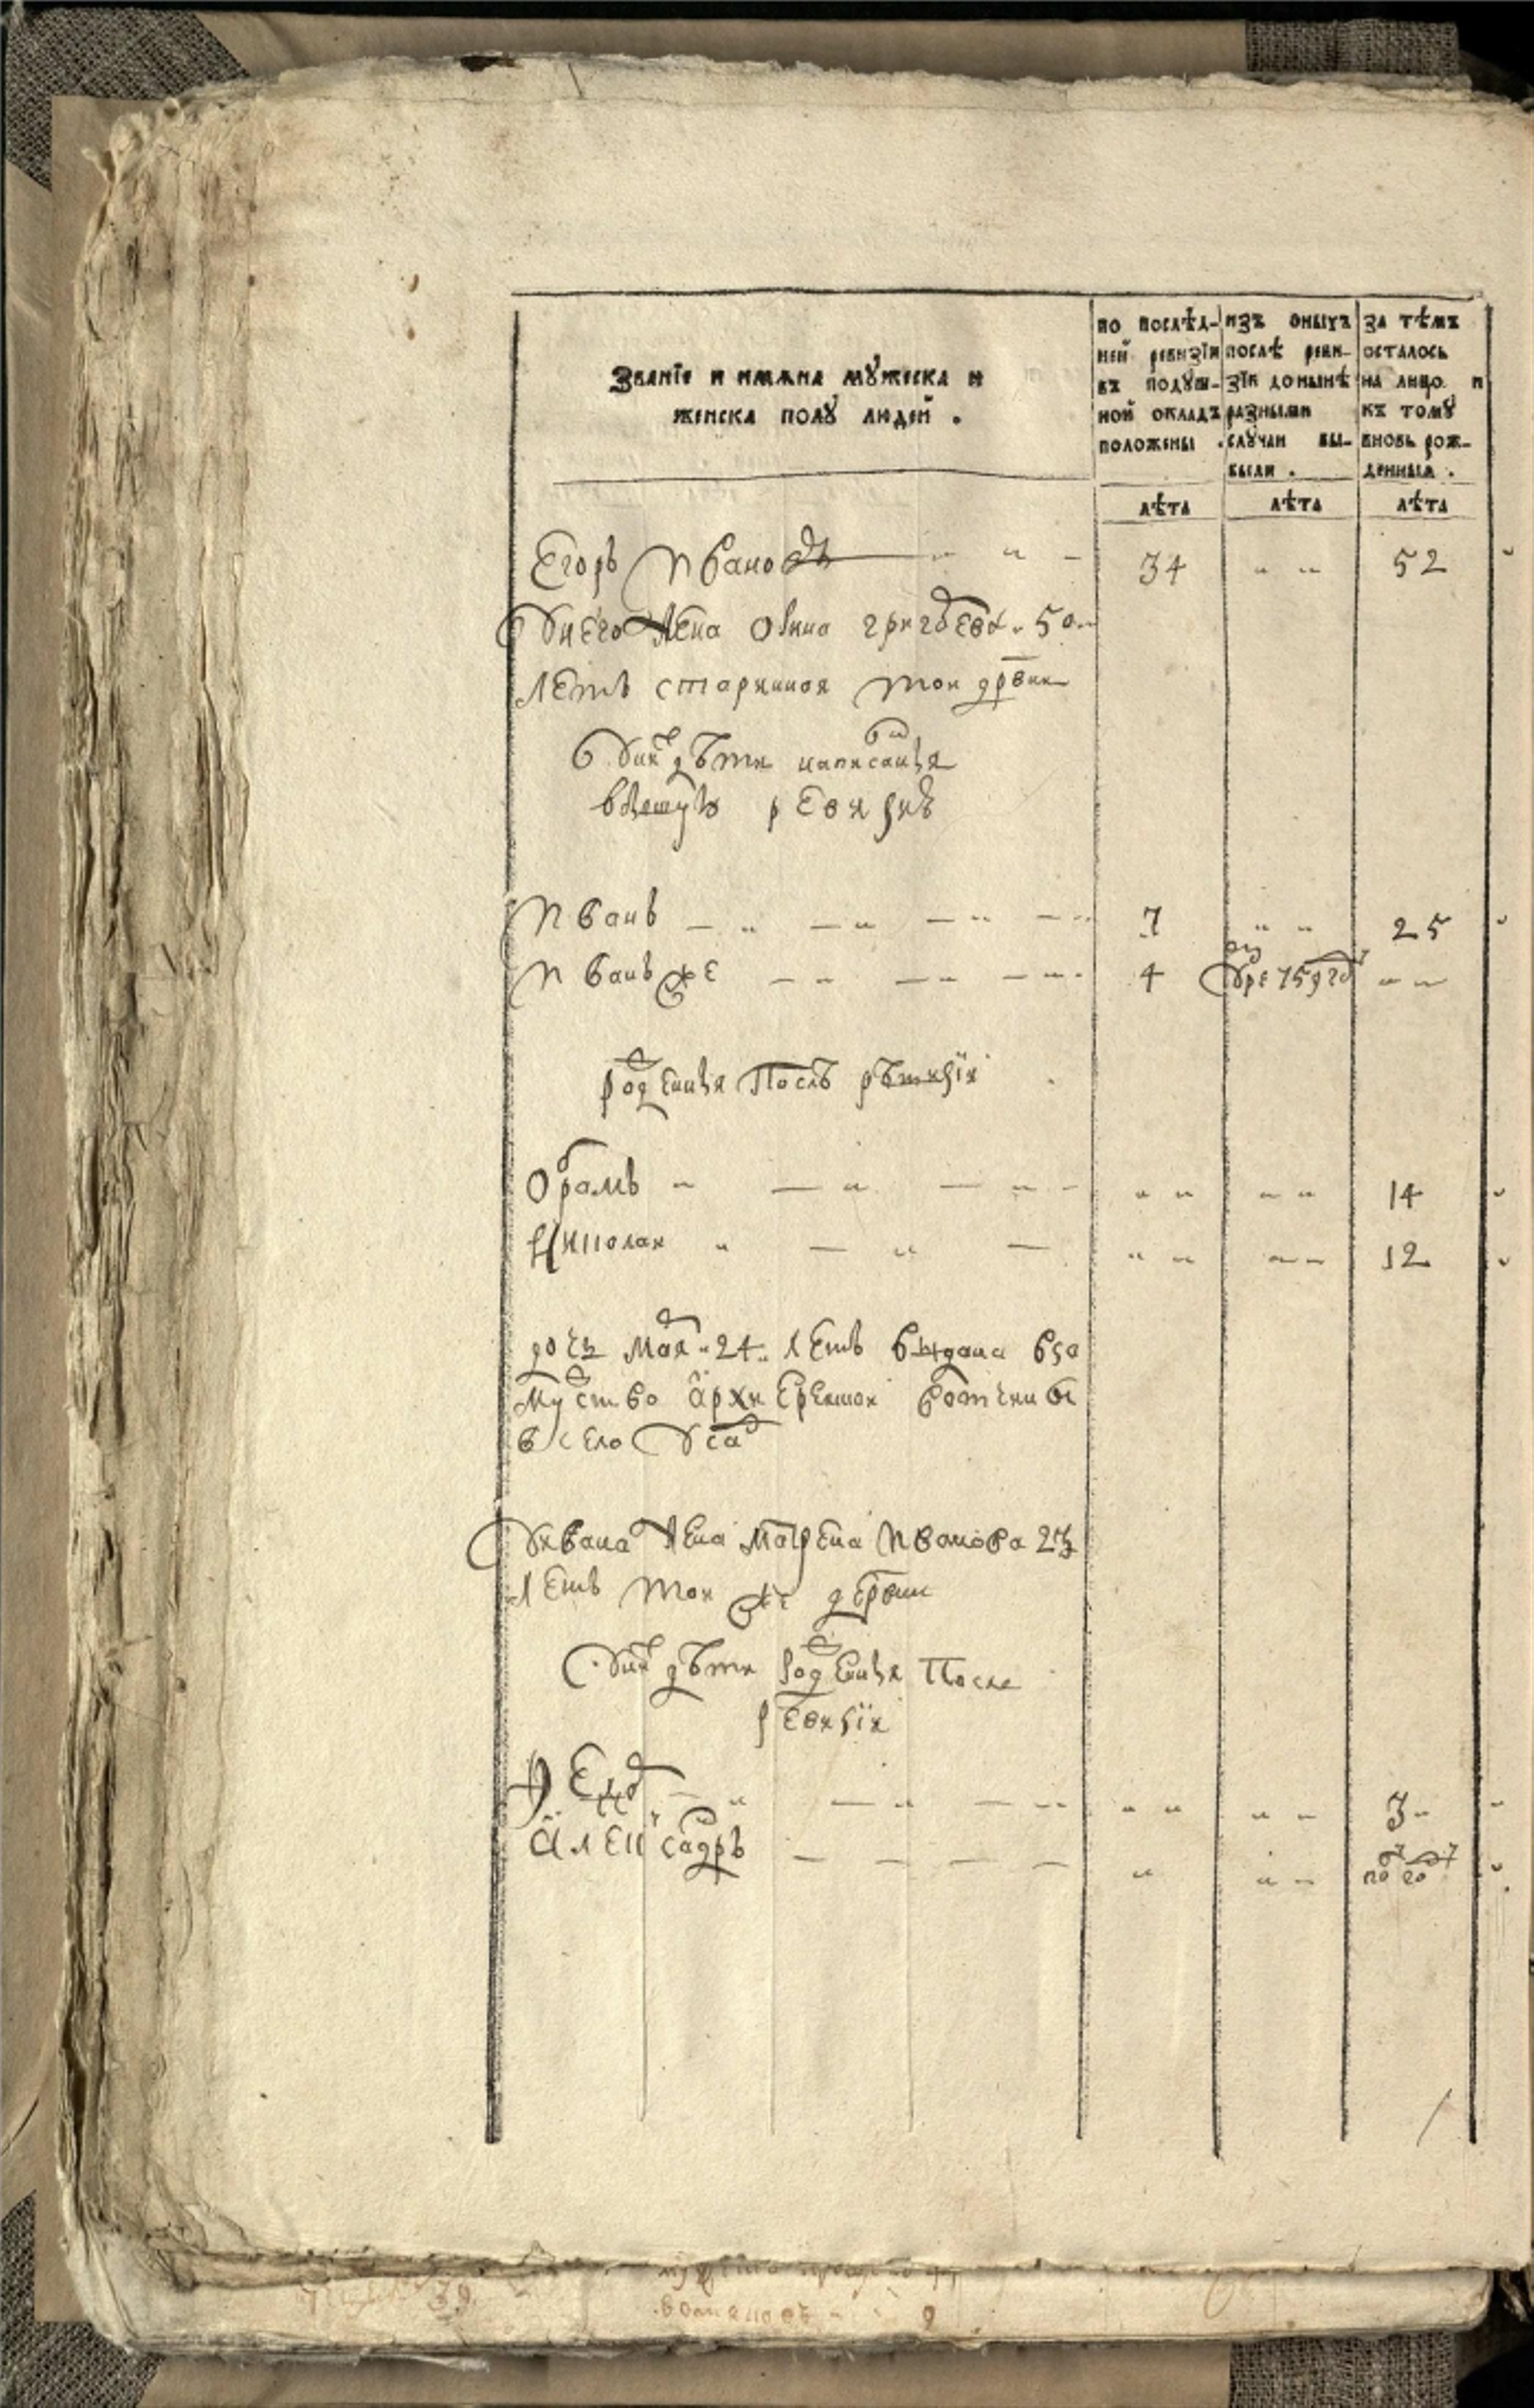 Званїе и имѧна мꙋжеска и
женска полꙋ людей .
по послѣд-
ней ревизїи
въ подꙋш-
ной окладъ
положены .
изъ оныхъ
послѣ реви-
зїи донынѣ
разными
слꙋчаи вы-
были .
за тѣмъ
осталось
на лицо и
къ томꙋ
вновь рож-
денныя .
лѣта лѣта лѣта
Егоръ Ивановъ 34 52
У него жена Анна григорева 50
летъ старинная тои дрвни
У них дѣти написанныя
в прешнуюю ревизию
Иванъ 7 25
Иванъ же 4 умре 759 году
рожденныя После ревизїи
Абрамъ 14
Николаи 12
дочь Марѧ 24 летъ выдана в за
мужство архиерейскои вотчины
в село
У Ивана жена Матрена Иванова 23
летъ тои же дервни
У них дѣти рожденныя После
ревизїи
Федор 3
Александръ полгоду